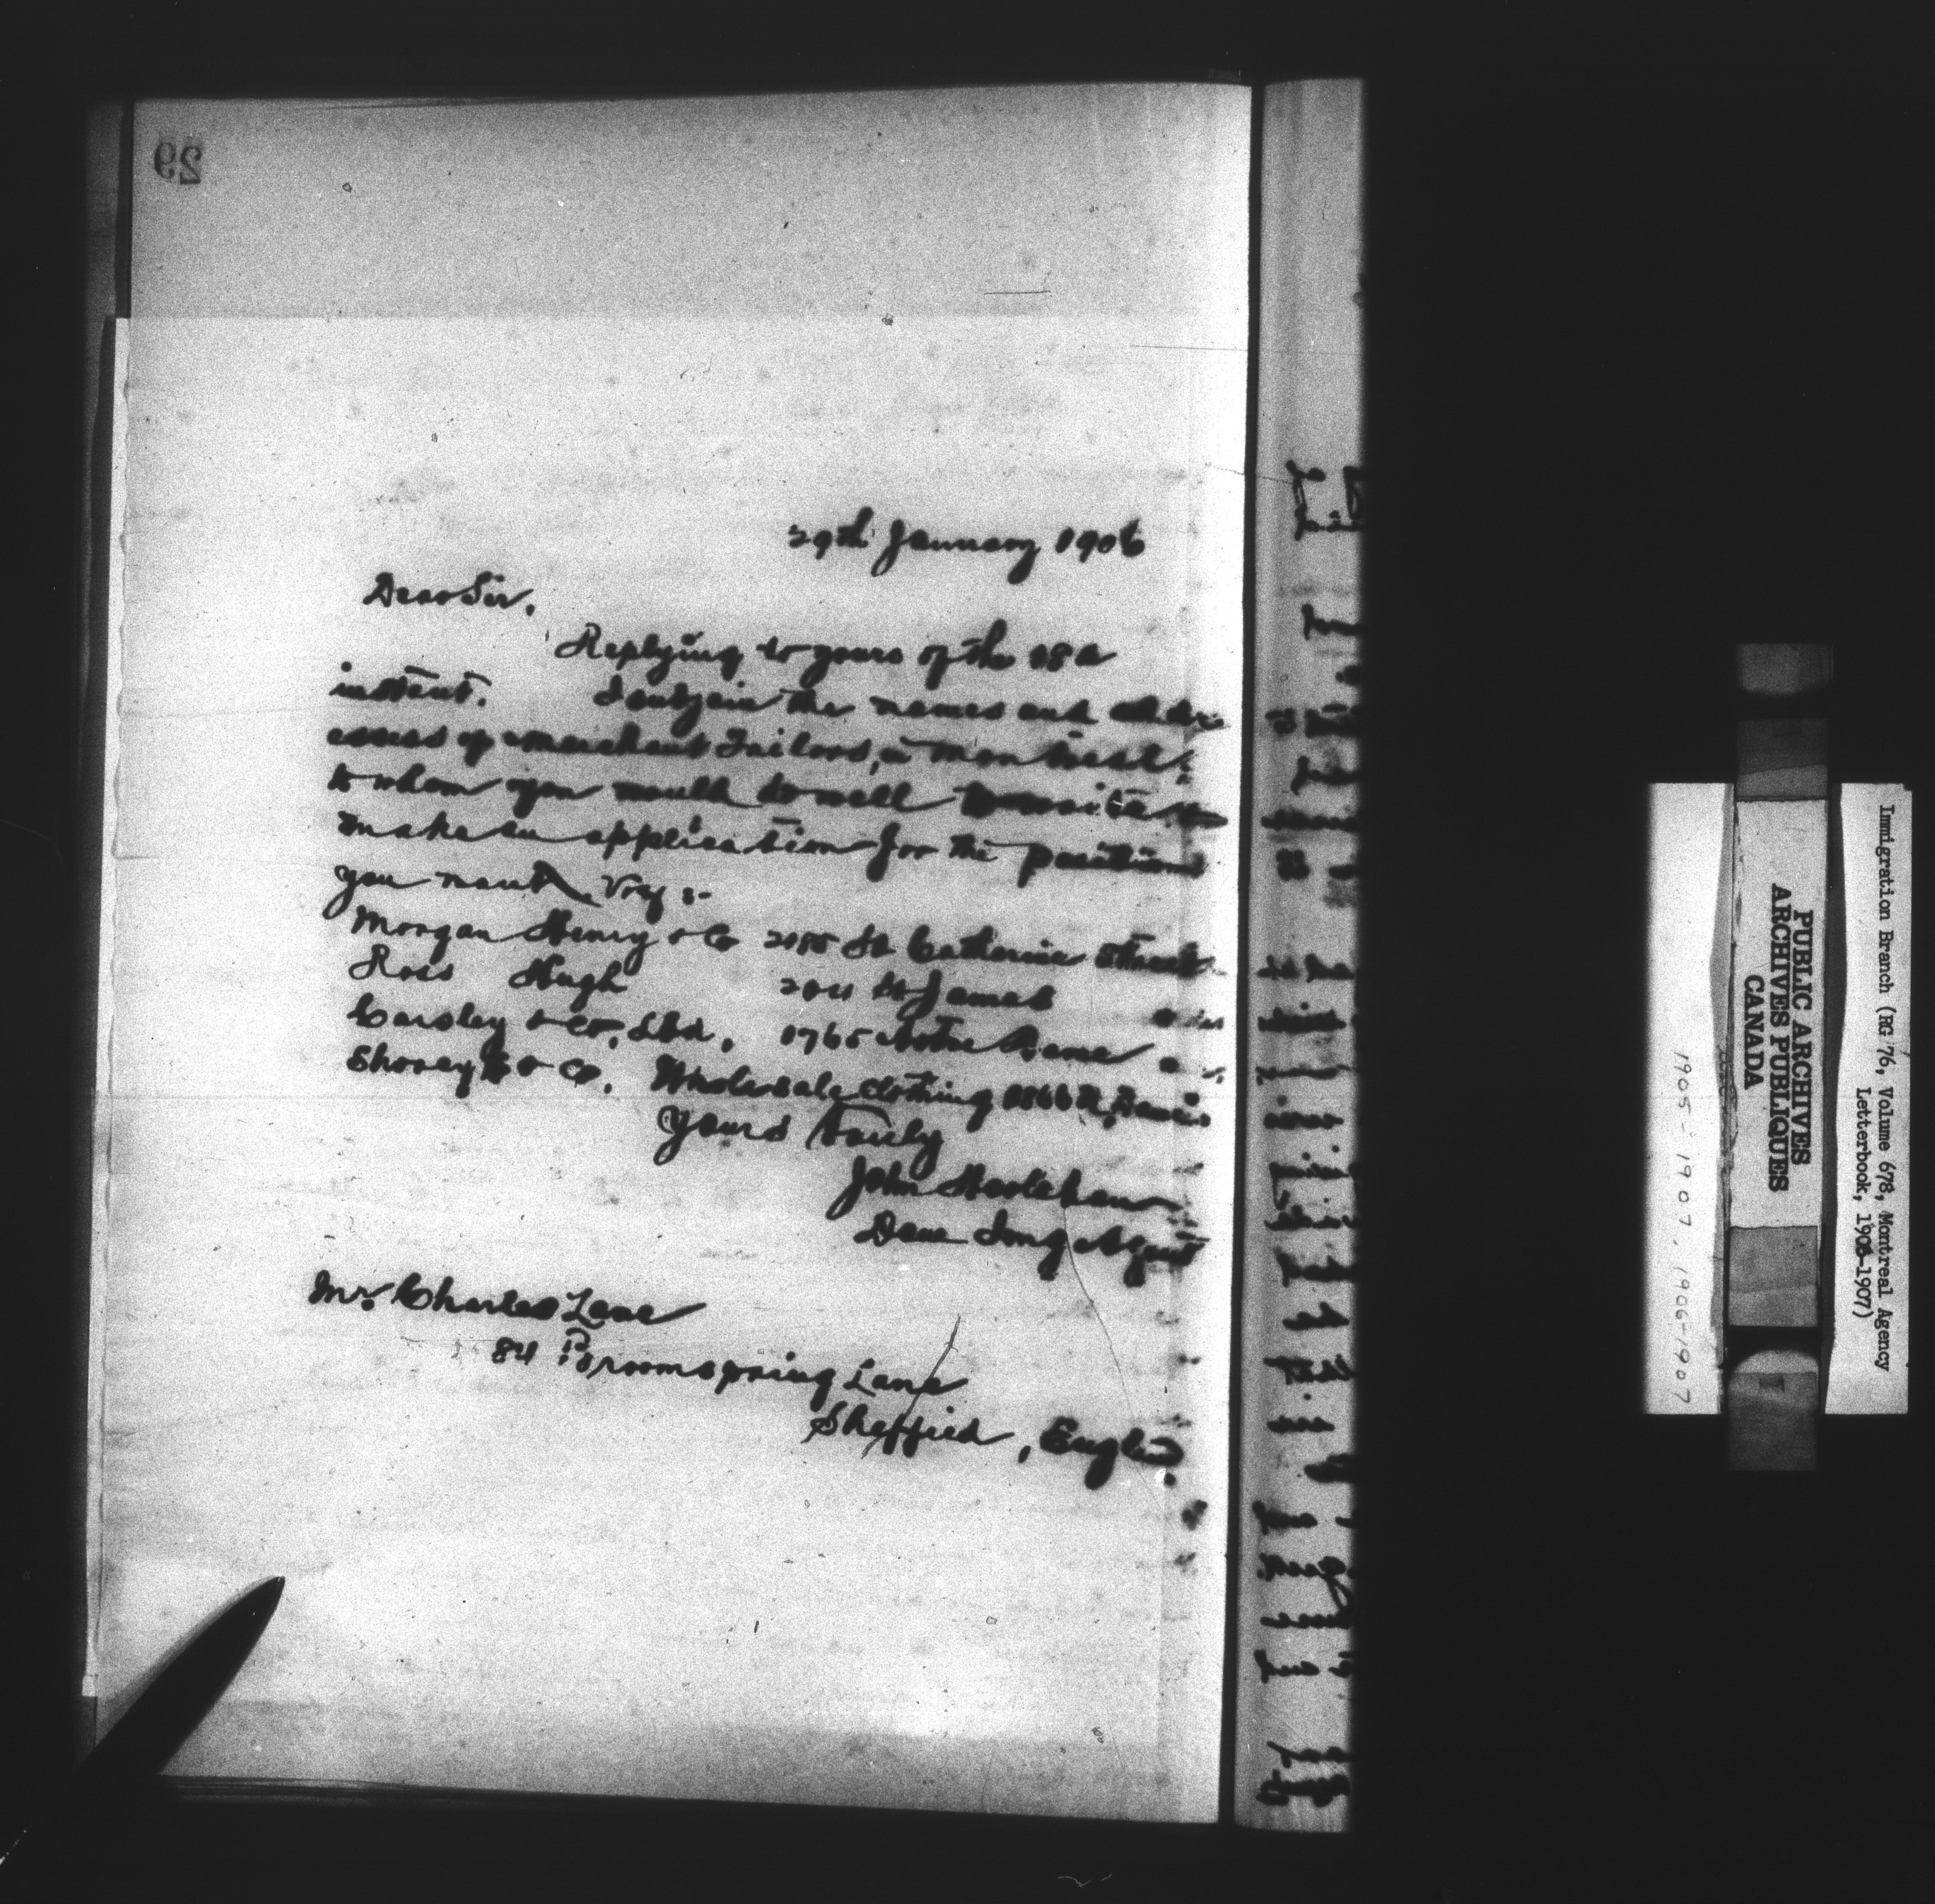 29
29th January 1906
Dear Sir,
Replying to yours of the 18th
instant. I subjoin the names and addr-
esses of merchant Tailors, in Montreal,
to whom you would do well to write &
make an application for the position
you want, Viz :-
Morgan Henry & Co 2185 St. Catherine Street
Ross Hugh 204 St James
Carsley & Co, Ltd, 1765 Notre Dame
Shorey & Co. Wholesale clothing 1866 N, Dame
Yours truly
John Hoolahan
Dom Img Agent
Mr. Charles Lane
84 Broomspring Lane
Sheffied, England
Immigration Branch (RG 76, Volume 678, Montreal Agency
Letterbook, 1906-1907)
PUBLIC ARCHIVES
ARCHIVES PUBLIQUES
CANADA
1905-1907, 1906-1907